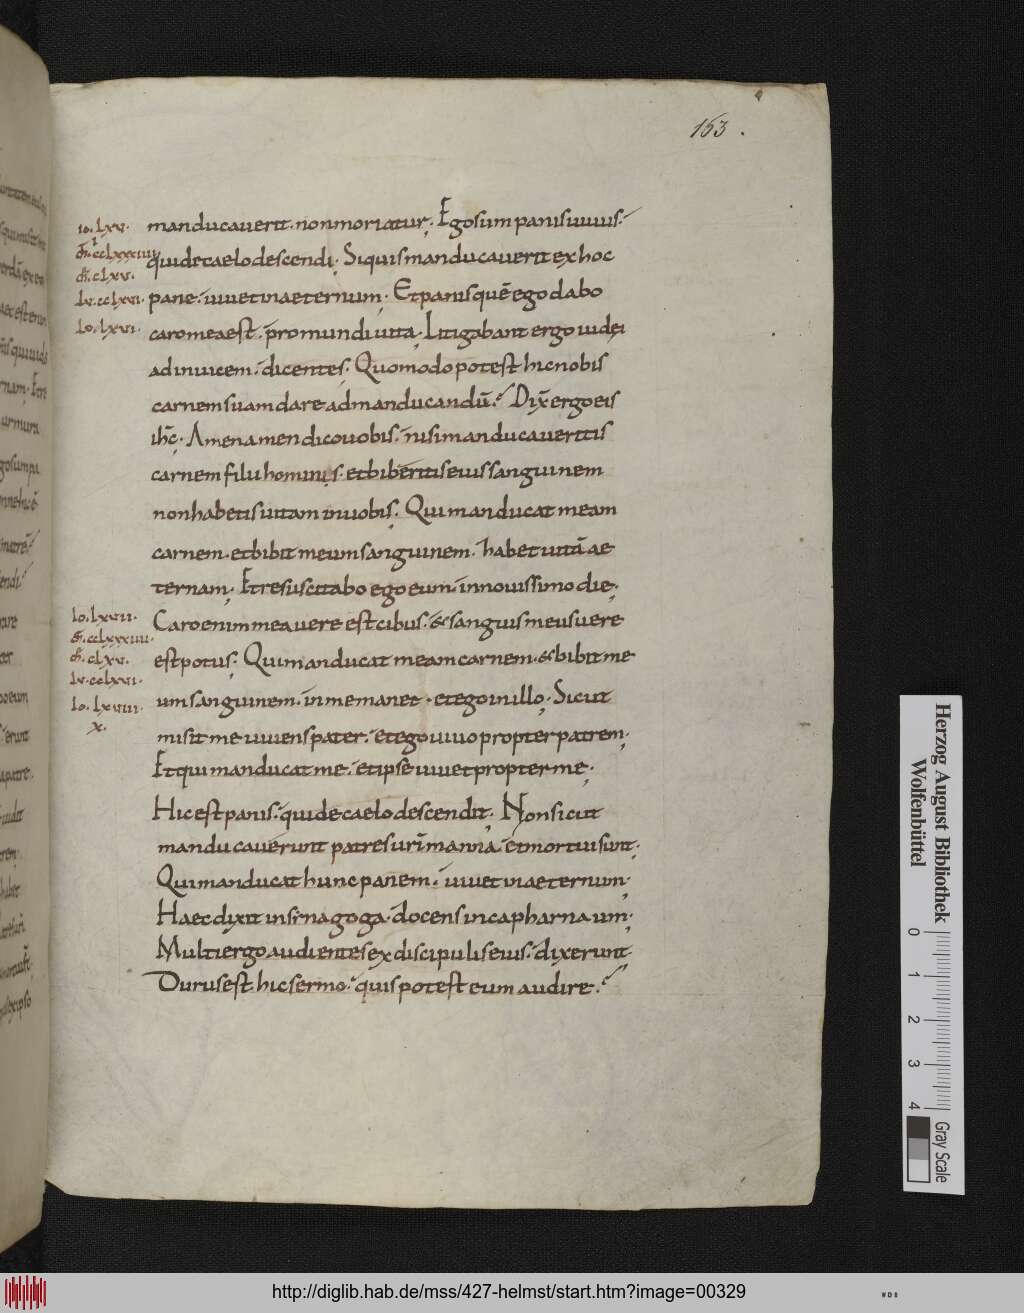 153.
manducauerit. non moriatur. Ego sum panis uiuus.
qui de caelo descendi. Si quis manducauerit ex hoc
pane. uiuet in aeternum. Et panis quē ego dabo
caro mea est. pro mundi uita. Litigabant ergo iudei
ad inuicem. dicentes. Quomodo potest hic nobis
carnem suam dare ad manducandū. Dix̄ ergo eis
ih̄c. Amen amen dico uobis. nisi manducaueritis
carnem filii hominis. et biberitis eius sanguinem
non habetis uitam in uobis. Qui manducat meam
carnem. et bibit meum sanguinem. habet uitā ae
ternam. Et resuscitabo ego eum. in nouissimo die.
Caro enim mea uere est cibus. & sanguis meus uere
est potus. Qui manducat meam carnem. & bibit me
um sanguinem. in me manet. et ego in illo. Sicut
misit me uiuens pater. et ego uiuo propter patrem.
Et qui manducat me. et ipse uiuet propter me.
Hic est panis. qui de caelo descendit. Non sicut
manducauerunt patres urī manna. et mortui sunt.
Qui manducat hunc panem. uiuet in aeternum.
Haec dixit in synagoga. docens in capharnaum.
Multi ergo audientes ex discipulis eius. dixerunt
Durus est hic sermo. quis potest eum audire.
io. lxv.
cclxxxiiii
clxv.
lu. cclxvi.
Io. lxvi.
Io. lxvii.
cclxxxiiii.
clxv.
lu. cclxvi.
Io. lxviii.
x.
Herzog August Bibliothek
Wolfenbüttel
0 1 2 3 4
Gray Scale
http://diglib.hab.de/mss/427-helmst/start.htm?image=00329